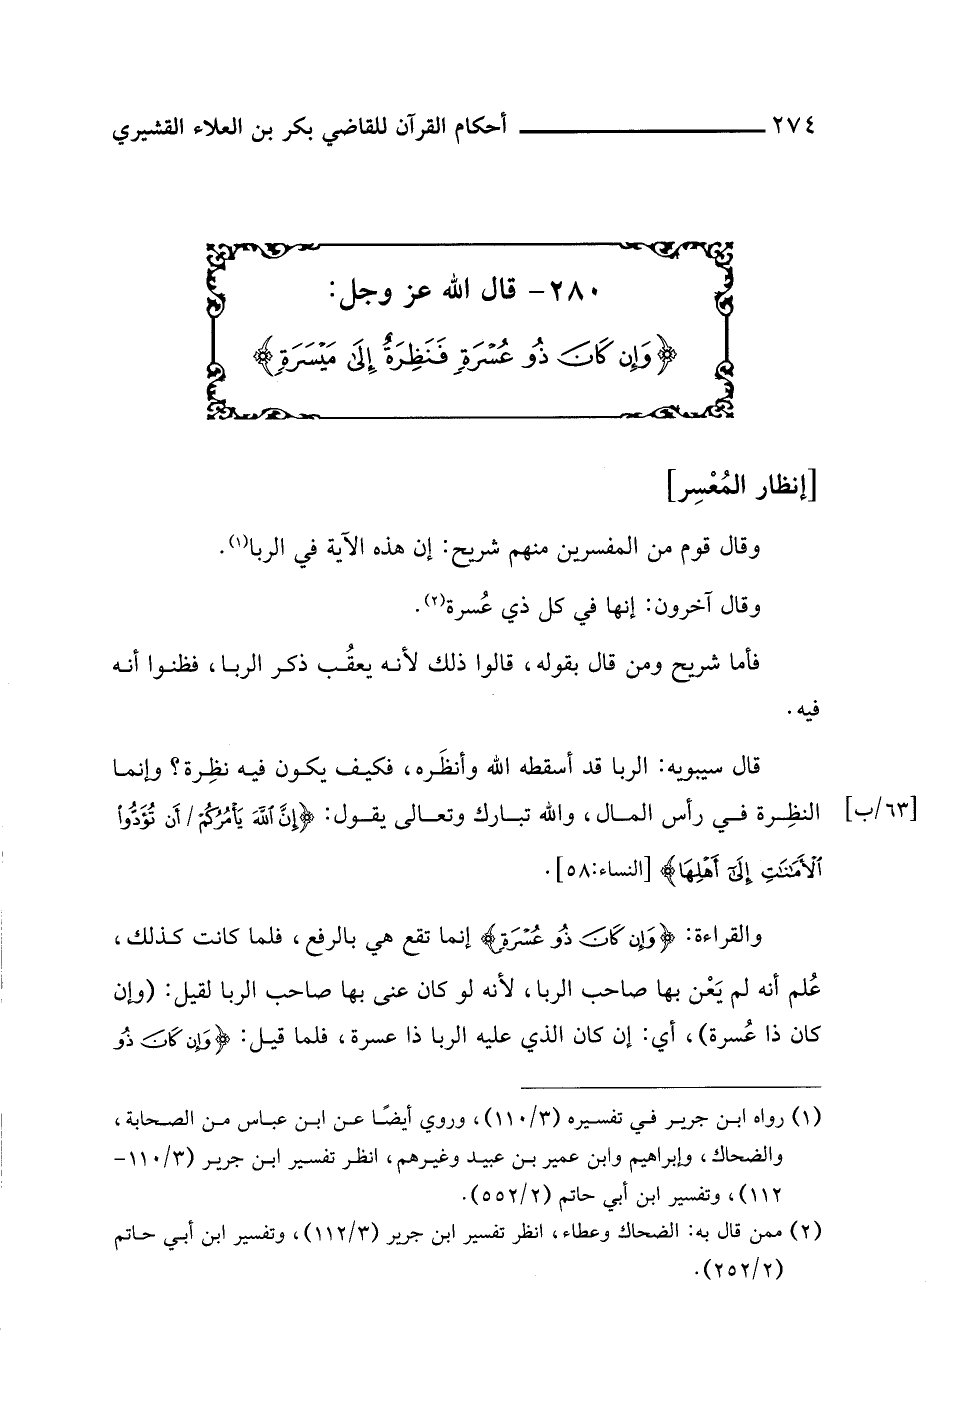 ٢٧٤ أحكام القرآن للقاضي بكر بن العلاء القشيري
٢٨٠- قال الله عز وجل:
﴿وَإِن كَانَ ذُو عُسْرَةٍ فَنَظِرَةٌ إِلَىٰ مَيْسَرَةٍ﴾
[إنظار المُعْسِر]
وقال قوم من المفسرين منهم شريح: إن هذه الآية في الربا(١).
وقال آخرون: إنها في كل ذي عُسرة(٢).
فأما شريح ومن قال بقوله، قالوا ذلك لأنه يعقُب ذكر الربا، فظنوا أنه
فيه.
قال سيبويه: الربا قد أسقطه الله وأنظَره، فكيف يكون فيه نظِرة؟ وإنما
النظِرة في رأس المال، والله تبارك وتعالى يقول: ﴿إِنَّ ٱللَّهَ يَأْمُرُكُمْ / أَن تُؤَدُّوا۟ [٦٣/ب]
ٱلْأَمَٰنَٰتِ إِلَىٰٓ أَهْلِهَا﴾ [النساء:٥٨].
والقراءة: ﴿وَإِن كَانَ ذُو عُسْرَةٍ﴾ إنما تقع هي بالرفع، فلما كانت كذلك،
عُلم أنه لم يَعْن بها صاحب الربا، لأنه لو كان عنى بها صاحب الربا لقيل: (وإن
كان ذا عُسرة)، أي: إن كان الذي عليه الربا ذا عسرة، فلما قيل: ﴿وَإِن كَانَ ذُو
(١) رواه ابن جرير في تفسيره (١١٠/٣)، وروي أيضًا عن ابن عباس من الصحابة،
والضحاك، وإبراهيم وابن عمير بن عبيد وغيرهم، انظر تفسير ابن جرير (١١٠/٣-
١١٢)، وتفسير ابن أبي حاتم (٥٥٢/٢).
(٢) ممن قال به: الضحاك وعطاء، انظر تفسير ابن جرير (١١٢/٣)، وتفسير ابن أبي حاتم
(٢٥٢/٢).